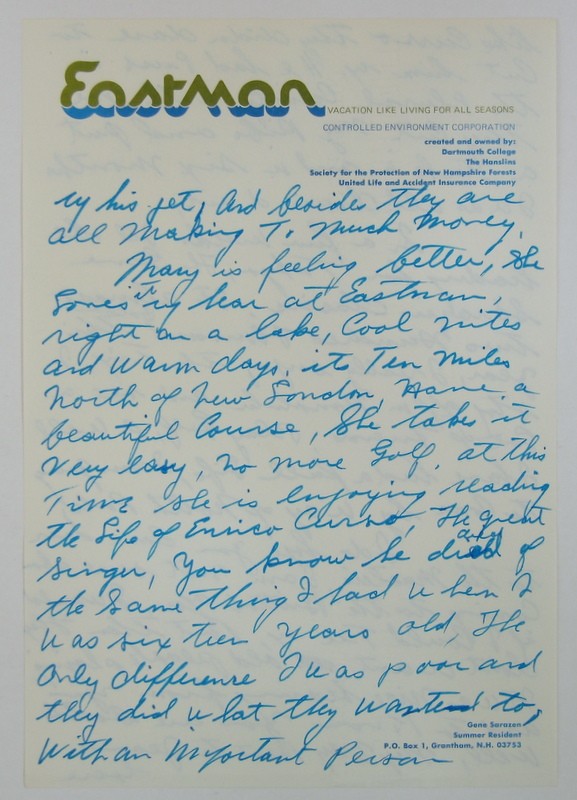 Eastman
VACATION LIKE LIVING FOR ALL SEASONS
CONTROLLED ENVIRONMENT CORPORATION
created and owned by:
Dartmouth College
The Hanslins
Society for the Protection of New Hampshire Forests
United Life and Accident Insurance Company
by his jet, And besides they are
all making To much money.
Mary is feeling better, She
loves it up hear at Eastman,
right on a lake, Cool nites
and warm days, its Ten miles
North of New London, Have a
beautiful Course, She takes it
Very easy, no more Golf, at this
Time she is enjoying reading
the Life of Enrico Curso, The great
singer, You know he died of
the same thing I had when I
was six teen years old, The
only difference I was poor and
they did what they wanted to,
With an important Person
Gene Sarazen
Summer Resident
P.O. Box 1, Grantham, N.H. 03753